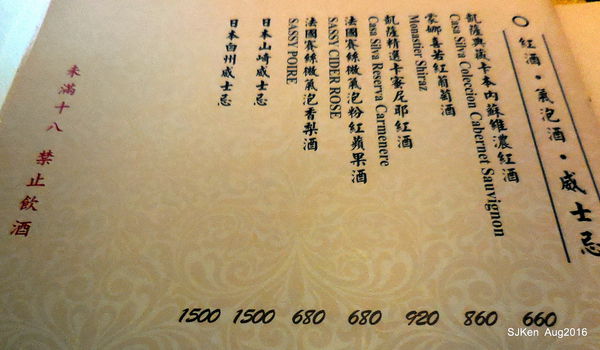 紅酒・氣泡酒・威士忌
凱薩典藏卡本內蘇維濃紅酒
Casa Silva Coleccion Cabernet Sauvignon
660
蒙娜喜若紅葡萄酒
Monastier Shiraz
860
凱薩精選卡蜜尼耶紅酒
Casa Silva Reserva Carmenere
920
法國賽絲微氣泡粉紅蘋果酒
SASSY CIDER ROSE
680
法國賽絲微氣泡香梨酒
SASSY POIRE
680
日本山崎威士忌
1500
日本白州威士忌
1500
未滿十八 禁止飲酒
SJKen Aug2016